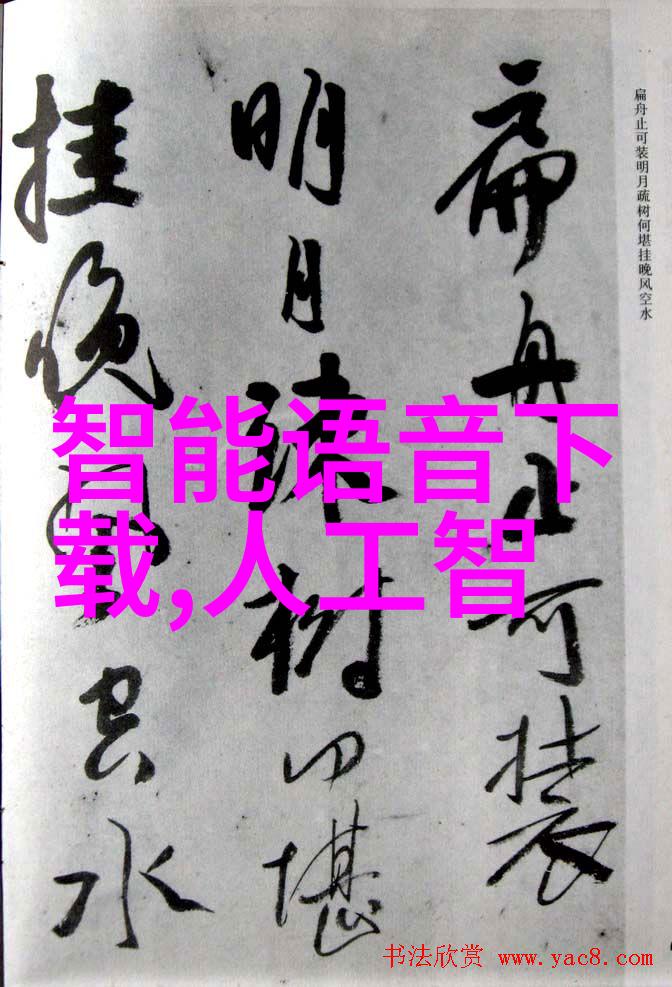 扁舟止可装
明月疏树何堪
挂晚风空水
扁舟止可装明月疏树何堪挂晚风空水
智能语音下
载,人工智
书法欣赏 www.yac8.com